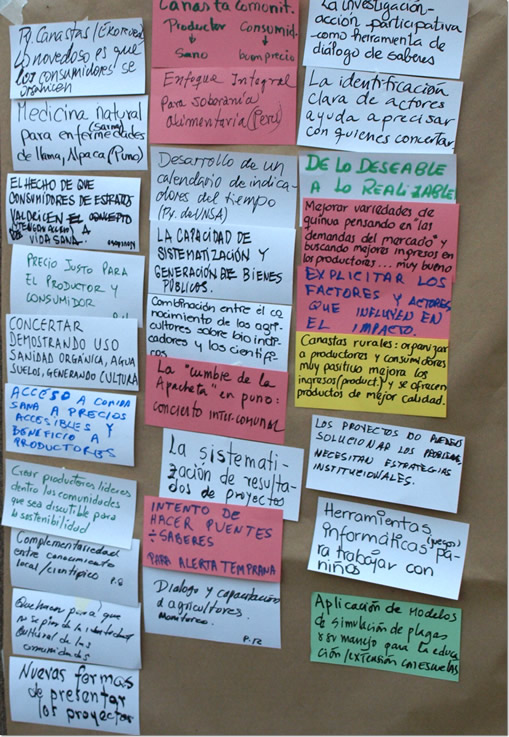 Py. Canastas/
Lo novedoso es que
los consumidores se
organicen
Medicina Natural
(Sarna)
para enfermedades
de llama, Alpaca (Puno)
EL HECHO DE QUE
CONSUMIDORES DE ESTRATOS
VALORICEN EL CONCEPTO
A
VIDA SANA.
PRECIO JUSTO PARA
EL PRODUCTOR Y
CONSUMIDOR
CONCERTAR
DEMOSTRANDO USO
SANIDAD ORGÁNICA, AGUA
SUELOS, GENERANDO CULTURA
ACCESO A COMIDA
SANA A PRECIOS
ACCESIBLES Y
BENEFICIO A
PRODUCTORES
Crear productores líderes
dentro las comunidades
que sea discutible para
la sostenibilidad
Complementariedad
entre conocimiento
local/científico
para que
no se pierda la identidad
cultural de las
comunidades
Nuevas formas
de presentar
los proyectos
Canasta Comunit.
Productor Consumid.
Sano buen precio
Enfoque Integral
para soberanía
alimentaria (Perú)
Desarrollo de un
calendario de indica-
dores del tiempo
(Py. de UNSA)
LA CAPACIDAD DE
SISTEMATIZACIÓN Y
GENERACIÓN DE BIENES
PÚBLICOS.
Combinación entre el co
nocimiento de los agri-
cultores sobre bio indi-
cadores y los científi-
cos
La "cumbre de la
Apacheta" en puno:
concierto inter-comunal
La sistemati-
zación de resulta-
dos de proyectos
INTENTO DE
HACER PUENTES
÷ SABERES
PARA ALERTA TEMPRANA
Dialogo y capacitación
a agricultores.
Monitoreo.
La investigación-
acción participativa
como herramienta de
diálogo de saberes
La identificación
clara de actores
ayuda a precisar
con quienes concertar.
DE LO DESEABLE
A LO REALIZABLE
Mejorar variedades de
quinua pensando en "las
demandas del mercado" y
buscando mejores ingresos en
los productores ... muy bueno
EXPLICITAR LOS
FACTORES Y ACTORES
QUE INFLUYEN EN
EL IMPACTO.
Canastas rurales: organizar
a productores y consumidores
muy positivo mejora los
ingresos (product.) y se ofrecen
productos de mejor calidad.
LOS PROYECTOS NO PUEDEN
SOLUCIONAR LOS PROBLEMAS,
NECESITAN ESTRATEGIAS
INSTITUCIONALES.
Herramientas
informáticas (juegos) pa-
ra trabajar con
niños
Aplicación de modelos
de simulación de plagas
y su manejo para la educa
ción/extensión en escuelas